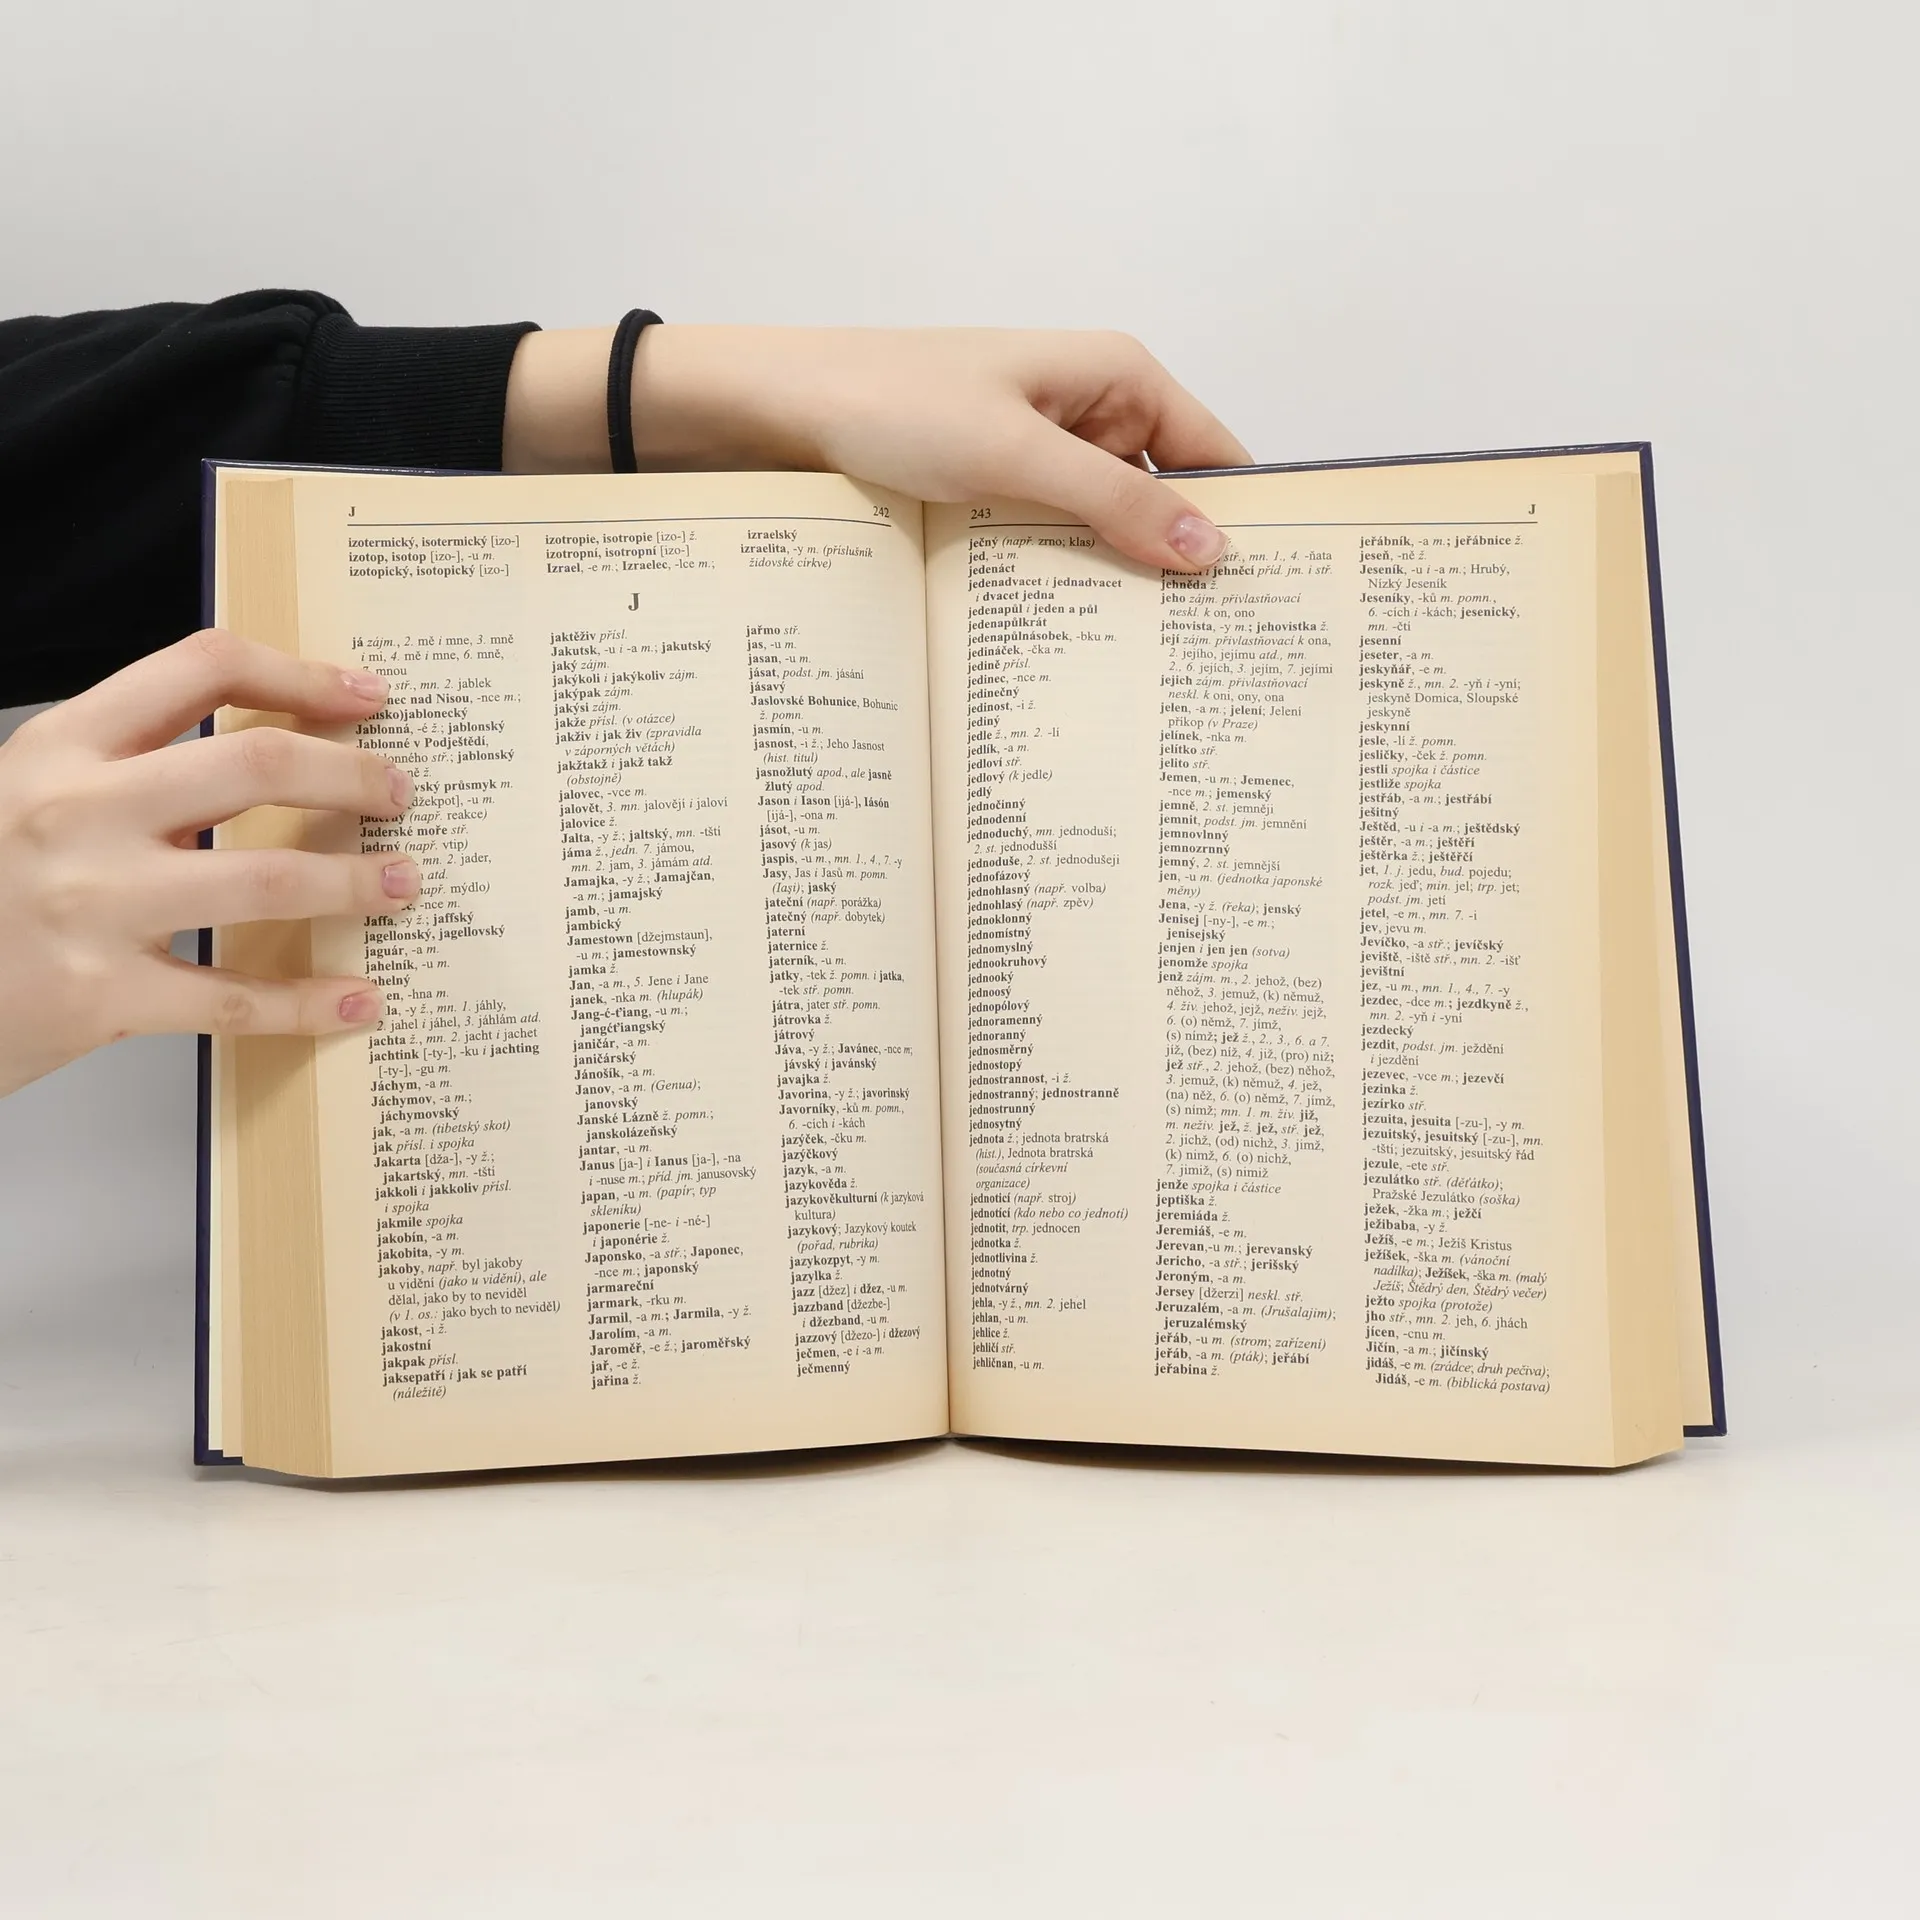 J 242
izotermický, isotermický [izo-]
izotop, isotop [izo-], -u m.
izotopický, isotopický [izo-]
izotropie, isotropie [izo-] ž.
izotropní, isotropní [izo-]
Izrael, -e m.; Izraelec, -lce m.;
izraelský
izraelita, -y m. (příslušník
židovské církve)
J
já zájm., 2. mě i mne, 3. mně
i mi, 4. mě i mne, 6. mně,
mnou
stř., mn. 2. jablek
nad Nisou, -nce m.;
jablonecký
Jablonná, -é ž.; jablonský
Jablonné v Podještědí,
stř.; jablonský
ž.
průsmyk m.
[džekpot], -u m.
(např. reakce)
Jaderské moře stř.
jadrný (např. vtip)
mn. 2. jader,
atd.
mýdlo)
-nce m.
Jaffa, -y ž.; jaffský
jagellonský, jagellovský
jaguár, -a m.
jahelník, -u m.
jahelný
-hna m.
-y ž., mn. 1. jáhly,
2. jahel i jáhel, 3. jáhlám atd.
jachta ž., mn. 2. jacht i jachet
jachtink [-ty-], -ku i jachting
[-ty-], -gu m.
Jáchym, -a m.
Jáchymov, -a m.;
jáchymovský
jak, -a m. (tibetský skot)
jak přísl. i spojka
Jakarta [dža-], -y ž.;
jakartský, mn. -tští
jakkoli i jakkoliv přísl.
i spojka
jakmile spojka
jakobín, -a m.
jakobita, -y m.
jakoby, např. byl jakoby
u vidění (jako u vidění), ale
dělal, jako by to neviděl
(v 1. os.: jako bych to neviděl)
jakost, -i ž.
jakostní
jakpak přísl.
jaksepatří i jak se patří
(náležitě)
jaktěživ přísl.
Jakutsk, -u i -a m.; jakutský
jaký zájm.
jakýkoli i jakýkoliv zájm.
jakýpak zájm.
jakýsi zájm.
jakže přísl. (v otázce)
jakživ i jak živ (zpravidla
v záporných větách)
jakžtakž i jakž takž
(obstojně)
jalovec, -vce m.
jalovět, 3. mn. jalovějí i jaloví
jalovice ž.
Jalta, -y ž.; jaltský, mn. -tští
jáma ž., jedn. 7. jámou,
mn. 2. jam, 3. jámám atd.
Jamajka, -y ž.; Jamajčan,
-a m.; jamajský
jamb, -u m.
jambický
Jamestown [džejmstaun],
-u m.; jamestownský
jamka ž.
Jan, -a m., 5. Jene i Jane
janek, -nka m. (hlupák)
Jang-c-ťiang, -u m.;
jangcťiangský
janičár, -a m.
janičárský
Jánošík, -a m.
Janov, -a m. (Genua);
janovský
Janské Lázně ž. pomn.;
janskolázeňský
jantar, -u m.
Janus [ja-] i Ianus [ja-], -na
i -nuse m.; příd. jm. janusovský
japan, -u m. (papír; typ
skleníku)
japonerie [-ne- i -né-]
i japonérie ž.
Japonsko, -a stř.; Japonec,
-nce m.; japonský
jarmareční
jarmark, -rku m.
Jarmil, -a m.; Jarmila, -y ž.
Jarolím, -a m.
Jaroměř, -e ž.; jaroměřský
jař, -e ž.
jařina ž.
jařmo stř.
jas, -u m.
jasan, -u m.
jásat, podst. jm. jásání
jásavý
Jaslovské Bohunice, Bohunic
ž. pomn.
jasmín, -u m.
jasnost, -i ž.; Jeho Jasnost
(hist. titul)
jasnožlutý apod., ale jasně
žlutý apod.
Jason i Iason [ijá-], Iásón
[ijá-], -ona m.
jásot, -u m.
jasový (k jas)
jaspis, -u m., mn. 1., 4., 7. -y
Jasy, Jas i Jasů m. pomn.
(Iaşi); jaský
jateční (např. porážka)
jatečný (např. dobytek)
jaterní
jaternice ž.
jaterník, -u m.
jatky, -tek ž. pomn. i jatka,
-tek stř. pomn.
játra, jater stř. pomn.
játrovka ž.
játrový
Jáva, -y ž.; Javánec, -nce m;
jávský i javánský
javajka ž.
Javorina, -y ž.; javorinský
Javorníky, -ků m. pomn.,
6. -cích i -kách
jazýček, -čku m.
jazýčkový
jazyk, -a m.
jazykověda ž.
jazykověkulturní (k jazyková
kultura)
jazykový; Jazykový koutek
(pořad, rubrika)
jazykozpyt, -y m.
jazylka ž.
jazz [džez] i džez, -u m.
jazzband [džezbe-]
i džezband, -u m.
jazzový [džezo-] i džezový
ječmen, -e i -a m.
ječmenný
243 J
ječný (např. zrno; klas)
jed, -u m.
jedenáct
jedenadvacet i jednadvacet
i dvacet jedna
jedenapůl i jeden a půl
jedenapůlkrát
jedenapůlnásobek, -bku m.
jedináček, -čka m.
jedině přísl.
jedinec, -nce m.
jedinečný
jedinost, -i ž.
jediný
jedle ž., mn. 2. -lí
jedlík, -a m.
jedloví stř.
jedlový (k jedle)
jedlý
jednočinný
jednodenní
jednoduchý, mn. jednoduší;
2. st. jednodušší
jednoduše, 2. st. jednodušeji
jednofázový
jednohlasný (např. volba)
jednohlasý (např. zpěv)
jednoklonný
jednomístný
jednomyslný
jednookruhový
jednooký
jednoosý
jednopólový
jednoramenný
jednoranný
jednosměrný
jednostopý
jednostrannost, -i ž.
jednostranný; jednostranně
jednostrunný
jednosytný
jednota ž.; jednota bratrská
(hist.), Jednota bratrská
(současná církevní
organizace)
jednoticí (např. stroj)
jednotící (kdo nebo co jednotí)
jednotit, trp. jednocen
jednotka ž.
jednotlivina ž.
jednotný
jednotvárný
jehla, -y ž., mn. 2. jehel
jehlan, -u m.
jehlice ž.
jehličí stř.
jehličnan, -u m.
stř., mn. 1., 4. -ňata
i jehněcí příd. jm. i stř.
jehněda ž.
jeho zájm. přivlastňovací
neskl. k on, ono
jehovista, -y m.; jehovistka ž.
její zájm. přivlastňovací k ona,
2. jejího, jejímu atd., mn.
2., 6. jejích, 3. jejím, 7. jejími
jejich zájm. přivlastňovací
neskl. k oni, ony, ona
jelen, -a m.; jelení; Jelení
příkop (v Praze)
jelínek, -nka m.
jelítko stř.
jelito stř.
Jemen, -u m.; Jemenec,
-nce m.; jemenský
jemně, 2. st. jemněji
jemnit, podst. jm. jemnění
jemnovlnný
jemnozrnný
jemný, 2. st. jemnější
jen, -u m. (jednotka japonské
měny)
Jena, -y ž. (řeka); jenský
Jenisej [-ny-], -e m.;
jenisejský
jenjen i jen jen (sotva)
jenomže spojka
jenž zájm. m., 2. jehož, (bez)
něhož, 3. jemuž, (k) němuž,
4. živ. jehož, jejž, neživ. jejž,
6. (o) němž, 7. jímž,
(s) nímž; jež ž., 2., 3., 6. a 7.
jíž, (bez) níž, 4. již, (pro) niž;
jež stř., 2. jehož, (bez) něhož,
3. jemuž, (k) němuž, 4. jež,
(na) něž, 6. (o) němž, 7. jímž,
(s) nímž; mn. 1. m. živ. již,
m. neživ. jež, ž. jež, stř. jež,
2. jichž, (od) nichž, 3. jimž,
(k) nimž, 6. (o) nichž,
7. jimiž, (s) nimiž
jenže spojka i částice
jeptiška ž.
jeremiáda ž.
Jeremiáš, -e m.
Jerevan,-u m.; jerevanský
Jericho, -a stř.; jerišský
Jeroným, -a m.
Jersey [džerzi] neskl. stř.
Jeruzalém, -a m. (Jrušalajim);
jeruzalémský
jeřáb, -u m. (strom; zařízení)
jeřáb, -a m. (pták); jeřábí
jeřabina ž.
jeřábník, -a m.; jeřábnice ž.
jeseň, -ně ž.
Jeseník, -u i -a m.; Hrubý,
Nízký Jeseník
Jeseníky, -ků m. pomn.,
6. -cích i -kách; jesenický,
mn. -čtí
jesenní
jeseter, -a m.
jeskyňář, -e m.
jeskyně ž., mn. 2. -yň i -yní;
jeskyně Domica, Sloupské
jeskyně
jeskynní
jesle, -lí ž. pomn.
jesličky, -ček ž. pomn.
jestli spojka i částice
jestliže spojka
jestřáb, -a m.; jestřábí
ješitný
Ještěd, -u i -a m.; ještědský
ještěr, -a m.; ještěří
ještěrka ž.; ještěrčí
jet, 1. j. jedu, bud. pojedu;
rozk. jeď; min. jel; trp. jet;
podst. jm. jetí
jetel, -e m., mn. 7. -i
jev, jevu m.
Jevíčko, -a stř.; jevíčský
jeviště, -iště stř., mn. 2. -išť
jevištní
jez, -u m., mn. 1., 4., 7. -y
jezdec, -dce m.; jezdkyně ž.,
mn. 2. -yň i -yní
jezdecký
jezdit, podst. jm. ježdění
i jezdění
jezevec, -vce m.; jezevčí
jezinka ž.
jezírko stř.
jezuita, jesuita [-zu-], -y m.
jezuitský, jesuitský [-zu-], mn.
-tští; jezuitský, jesuitský řád
jezule, -ete stř.
jezulátko stř. (děťátko);
Pražské Jezulátko (soška)
ježek, -žka m.; ježčí
ježibaba, -y ž.
Ježíš, -e m.; Ježíš Kristus
ježíšek, -ška m. (vánoční
nadílka); Ježíšek, -ška m. (malý
Ježíš; Štědrý den, Štědrý večer)
ježto spojka (protože)
jho stř., mn. 2. jeh, 6. jhách
jícen, -cnu m.
Jičín, -a m.; jičínský
jidáš, -e m. (zrádce; druh pečiva);
Jidáš, -e m. (biblická postava)